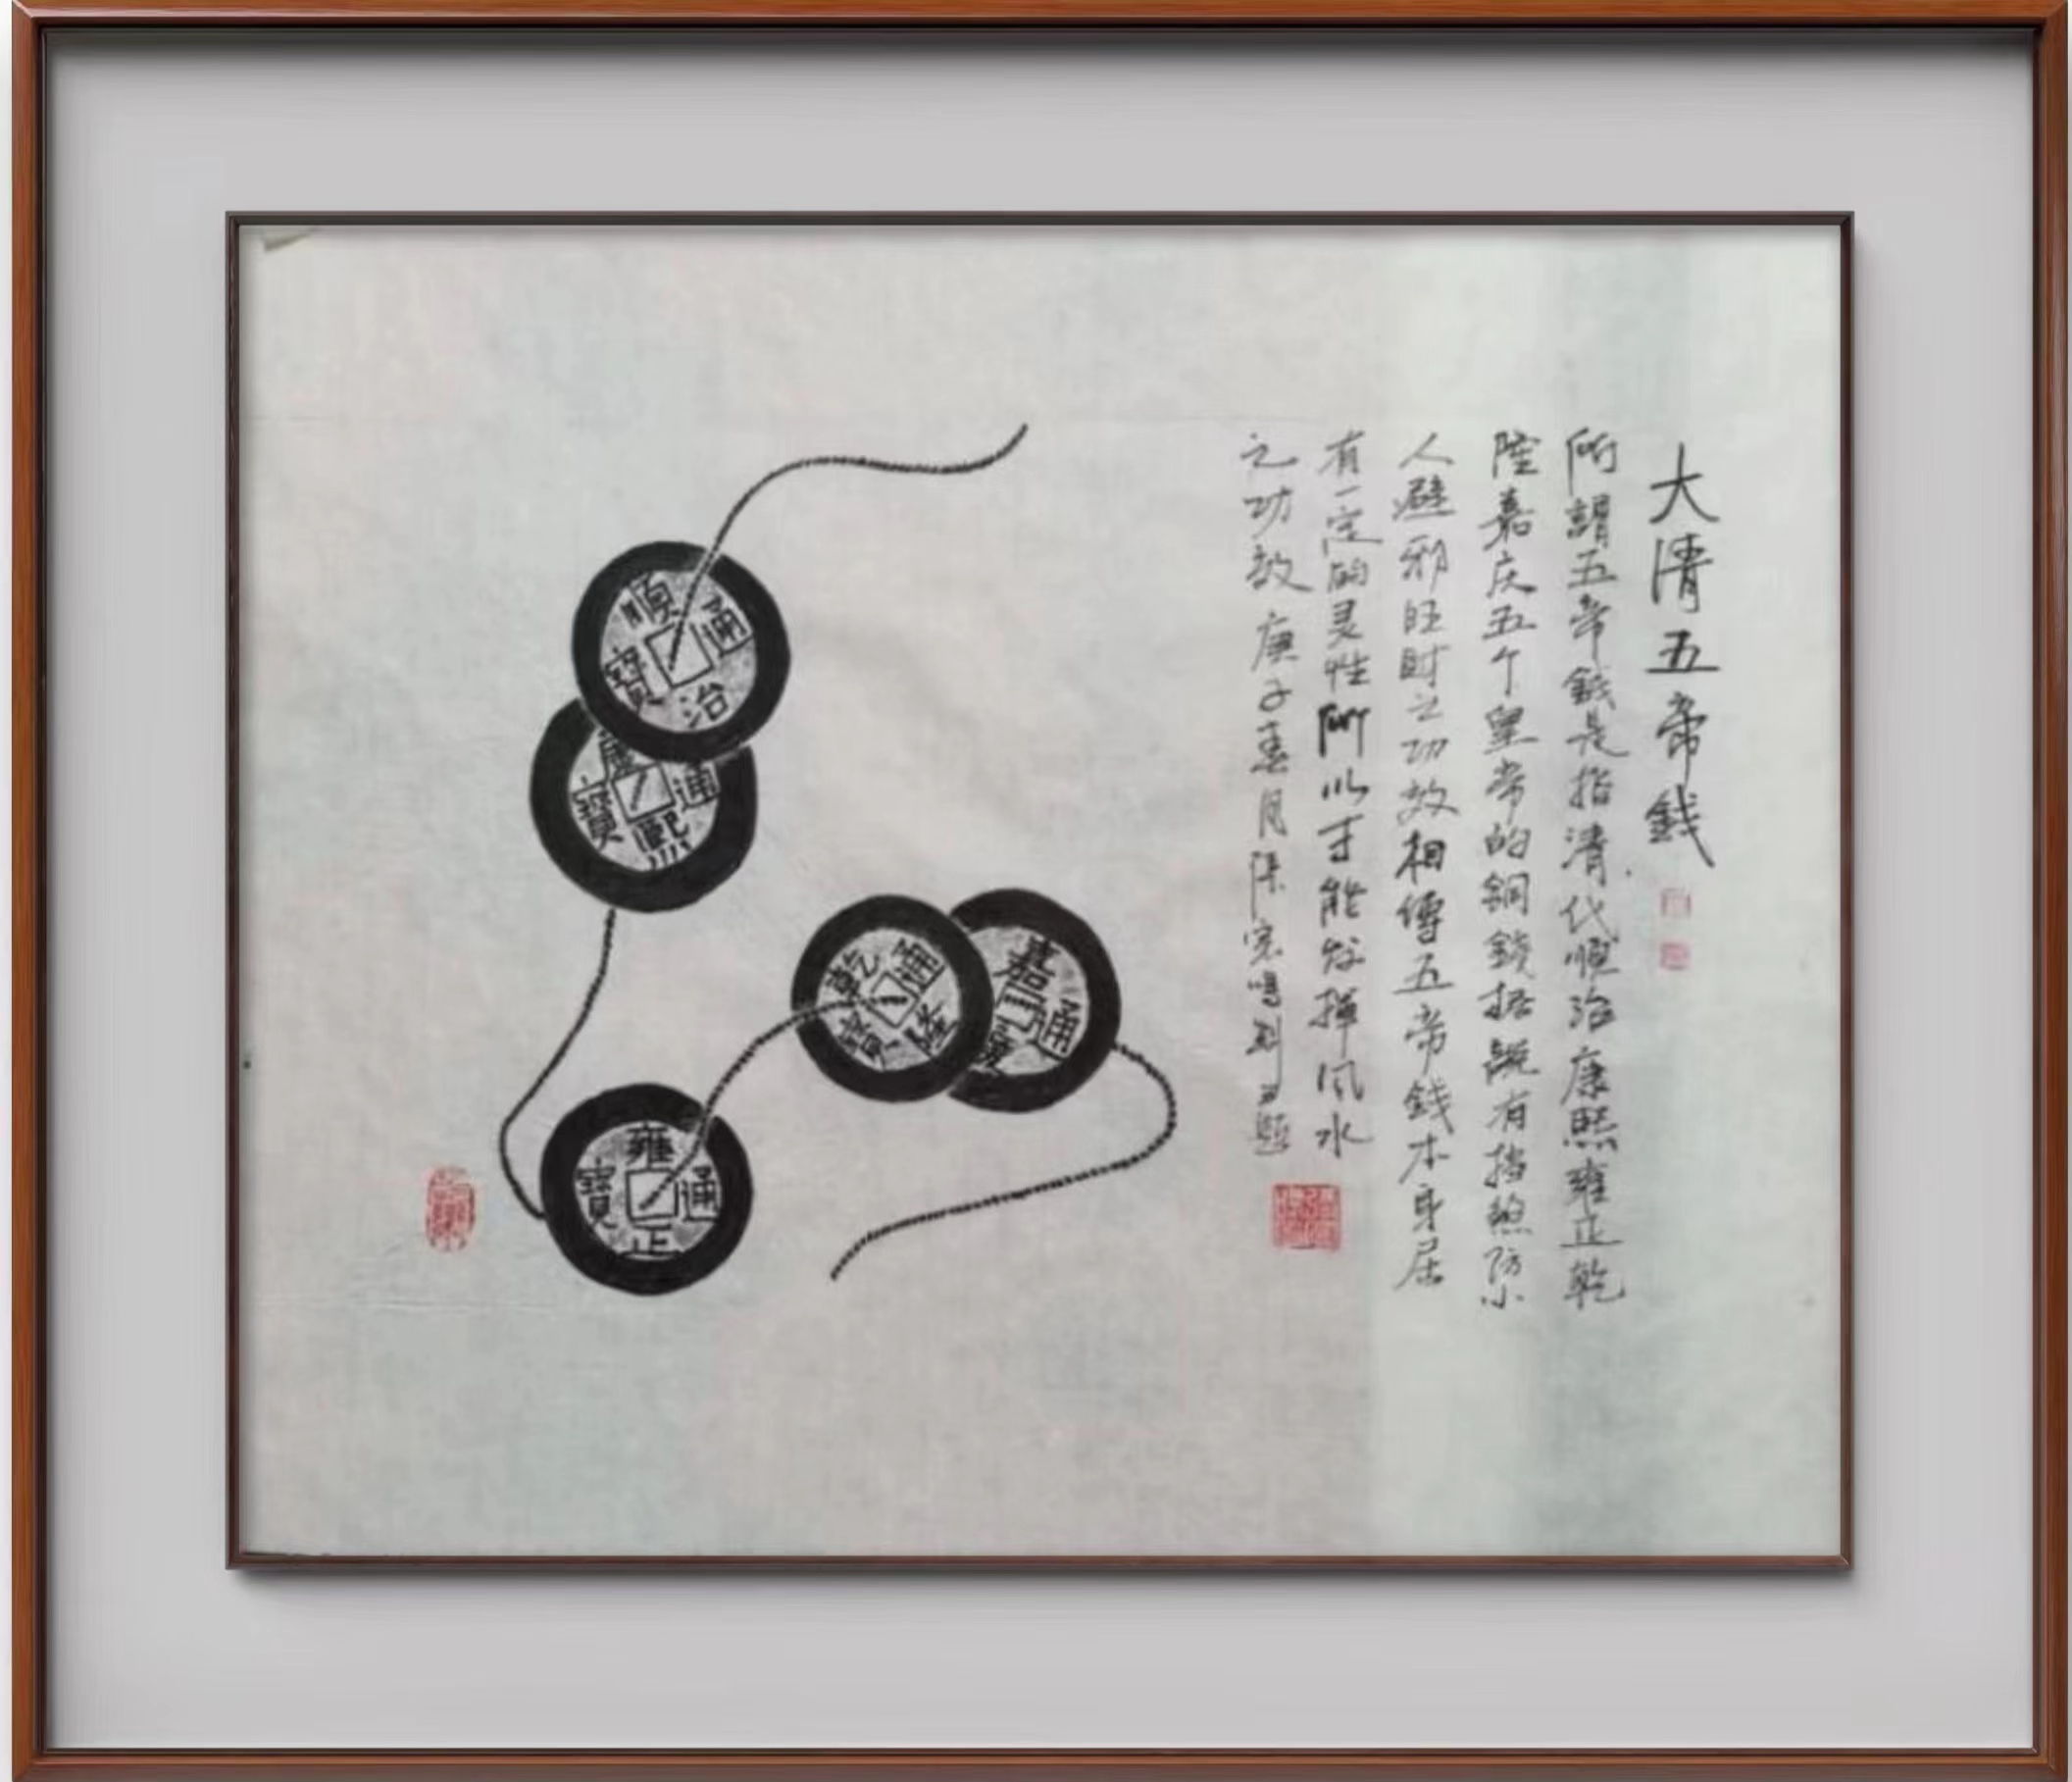 大清五帝錢
所謂五帝錢是指清代順治康熙雍正乾
隆嘉庆五个皇帝的銅錢据說有挡煞防小
人避邪旺財之功效相傳五帝錢本身居
有一定的灵性所以才能发揮风水
之功效庚子春月
順治通寶
康熙通寶
雍正通寶
乾隆通寶
嘉通